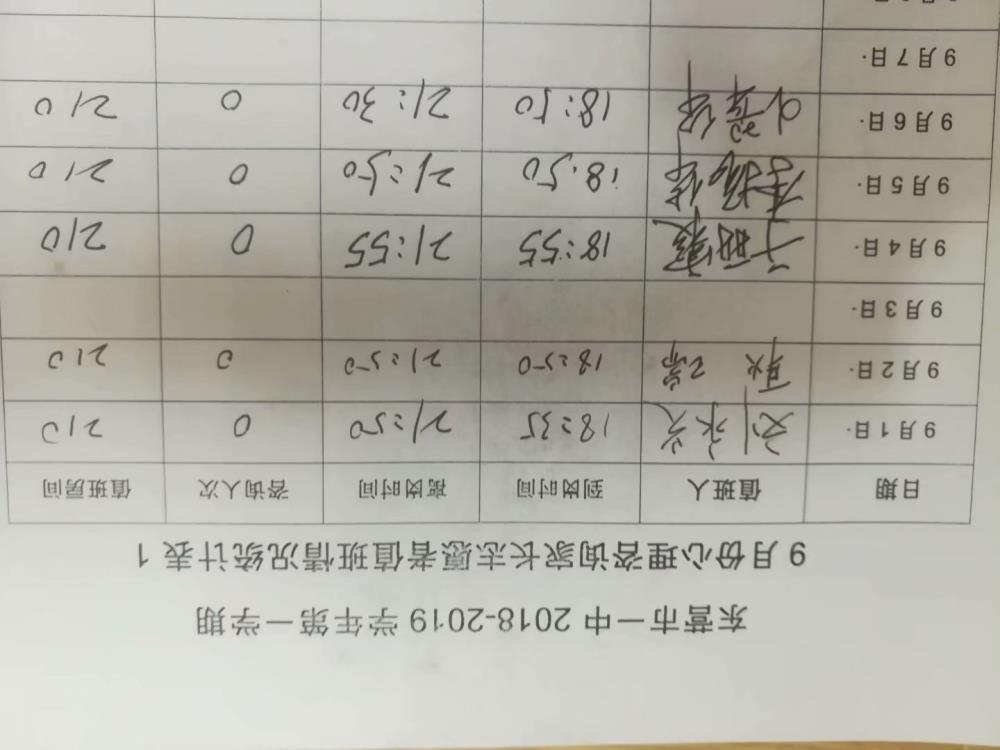 东营市一中 2018-2019 学年第一学期
9 月份心理咨询家长志愿者值班情况统计表 1
日期 值班人 到岗时间 离岗时间 咨询人次 值班房间
9 月 1 日 刘永美 18:35 21:50 0 210
9 月 2 日 18:50 21:50 0 210
9 月 3 日
9 月 4 日 18:55 21:55 0 210
9 月 5 日 18:50 21:50 0 210
9 月 6 日 18:50 21:30 0 210
9 月 7 日